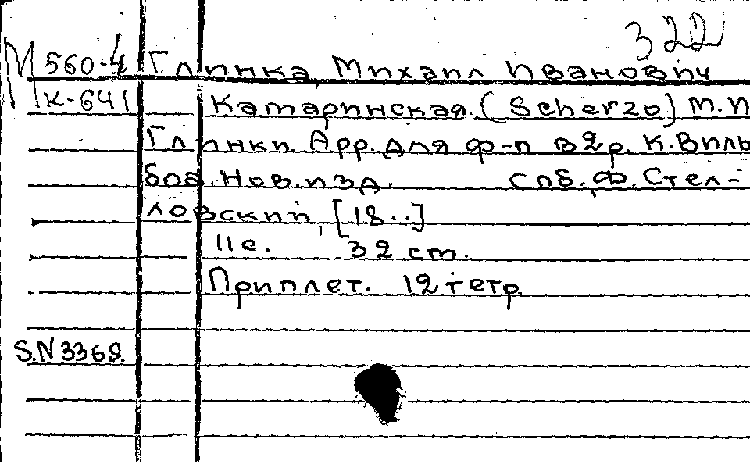 322
М 560-4 Глинка, Михаил Иванович
К-641 Катаринская. (Scherzo) М.И
Глинки. Арр. для ф-п в 2 р. К. Виль
боа. Нов. изд. Спб. Ф. Стел-
ловский, [18..]
11 с. 32 cm.
Приплет. 12 тетр.
S.N 3368.